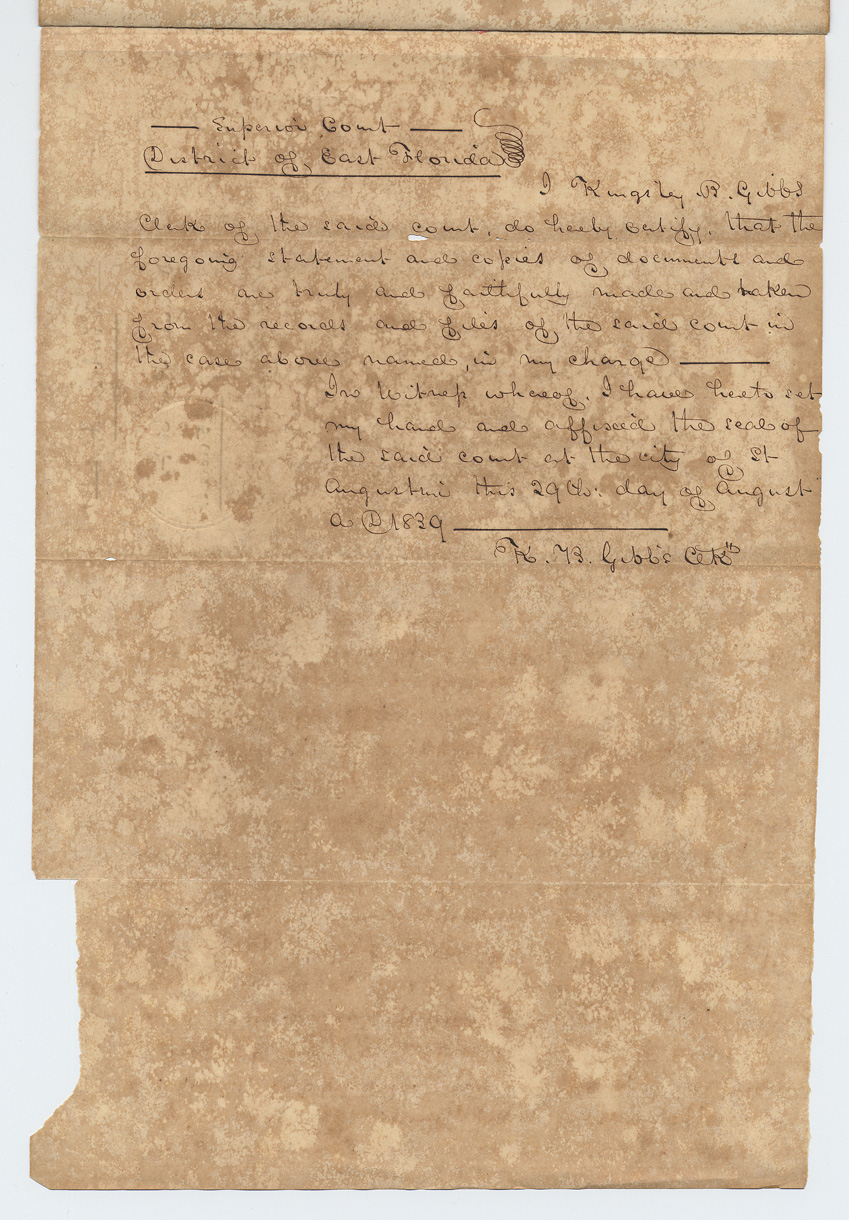 — Superior Court —
District of East Florida
I Kingsley B. Gibbs
Clerk of the said court, do hereby certify, that the
foregoing statement and copies of documents and
orders are truly and faithfully made and taken
from the records and files of the said court in
the case above named, in my charge —
In Witness whereof, I have hereto set
my hand and affixed the seal of
the said court at the city of St
Augustine this 29th: day of August
A D 1839 —
K. B. Gibbs Clk